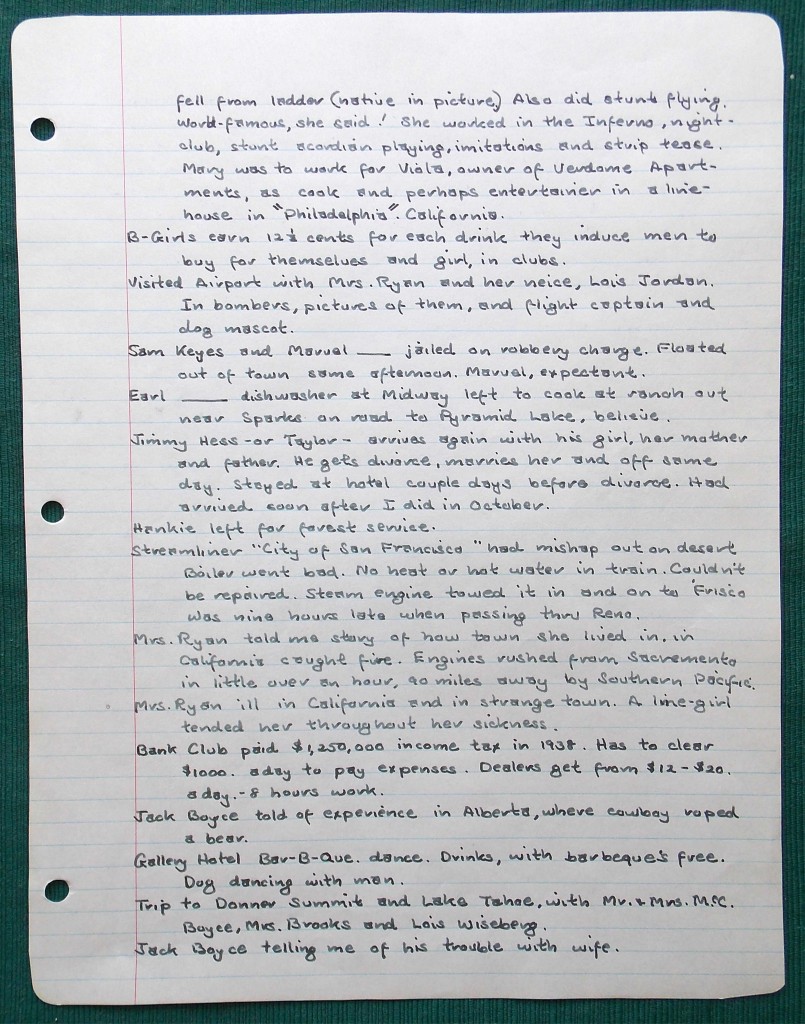 fell from ladder (native in picture) Also did stunt flying.
World-famous, she said! She worked in the Inferno, night-
club, stunt acordian playing, imitations and strip tease.
Mary was to work for Viola, owner of Vendome Apart-
ments, as cook and perhaps entertainer in a line-
house in "Philadelphia". California.
B-Girls earn 12½ cents for each drink they induce men to
buy for themselves and girl, in clubs.
Visited Airport with Mrs. Ryan and her neice, Lois Jordan.
In bombers, pictures of them, and flight captain and
dog mascot.
Sam Keyes and Marvel ___ jailed on robbery charge. Floated
out of town same afternoon. Marvel, expectant.
Earl ___ dishwasher at Midway left to cook at ranch out
near Sparks on road to Pyramid Lake, believe.
Jimmy Hess -or Taylor- arrives again with his girl, her mother
and father. He gets divorce, marries her and off same
day. Stayed at hotel couple days before divorce. Had
arrived soon after I did in October.
Hankie left for forest service.
Streamliner "City of San Francisco" had mishap out on desert
Boiler went bad. No heat or hot water in train. Couldn't
be repaired. Steam engine towed it in and on to 'Frisco
Was nine hours late when passing thru Reno.
Mrs. Ryan told me story of how town she lived in, in
California caught fire. Engines rushed from Sacremento
in little over an hour, 90 miles away by Southern Pacific.
Mrs. Ryan ill in California and in strange town. A line-girl
tended her throughout her sickness.
Bank Club paid $1,250,000 income tax in 1938. Has to clear
$1000. a day to pay expenses. Dealers get from $12-$20.
a day.-8 hours work.
Jack Boyce told of experience in Alberta, where cowboy roped
a bear.
Gallery Hotel Bar-B-Que. dance. Drinks, with barbeque's free.
Dog dancing with man.
Trip to Donner Summit and Lake Tahoe, with Mr. & Mrs. M.C.
Boyce, Mrs. Brooks and Lois Wiseberg.
Jack Boyce telling me of his trouble with wife.